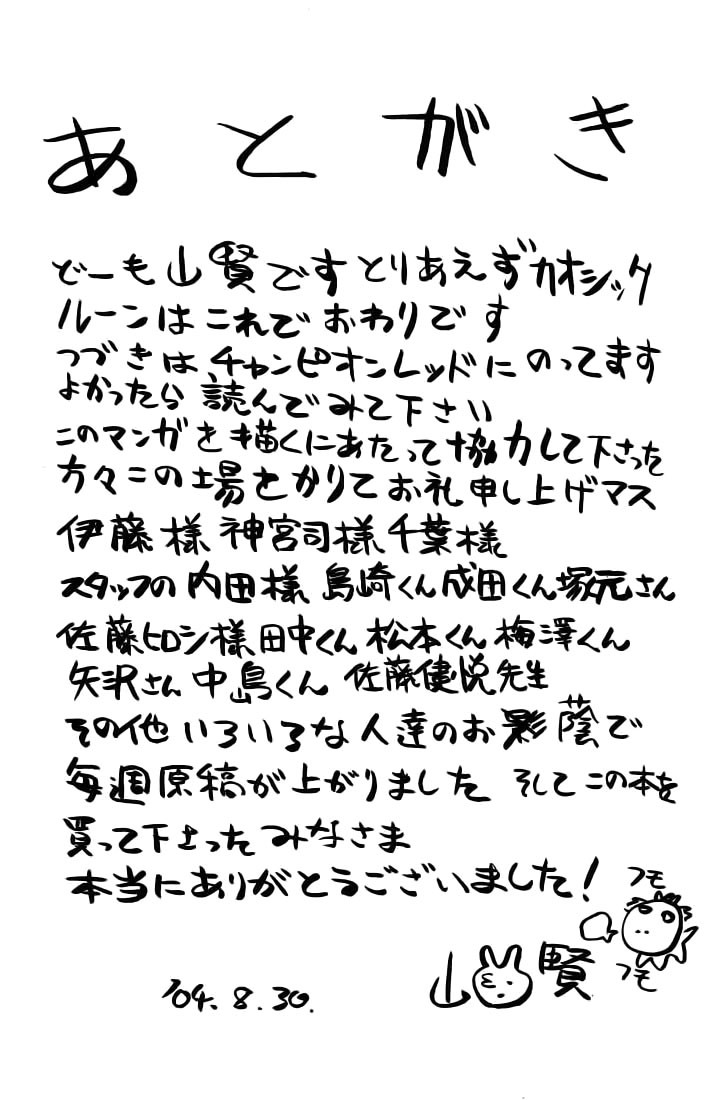 あとがき
どーも山賢ですとりあえずカオシック
ルーンはこれでおわりです
つづきは、チャンピオンレッドにのってます
よかったら読んでみて下さい
このマンガを描くにあたって協力して下さった
方々この場をかりてお礼申し上げマス
伊藤様神宮司様千葉様
スタッフの内田様島崎くん成田くん塚元さん
佐藤ヒロシ様田中くん松本くん梅澤くん
矢沢さん中島くん佐藤健悦先生
その他いろいろな人達のお影蔭で
毎週原稿が上がりました そしてこの本を
買って下さったみなさま
本当にありがとうございました!
フモ
山賢
フモ
'04.8.30.